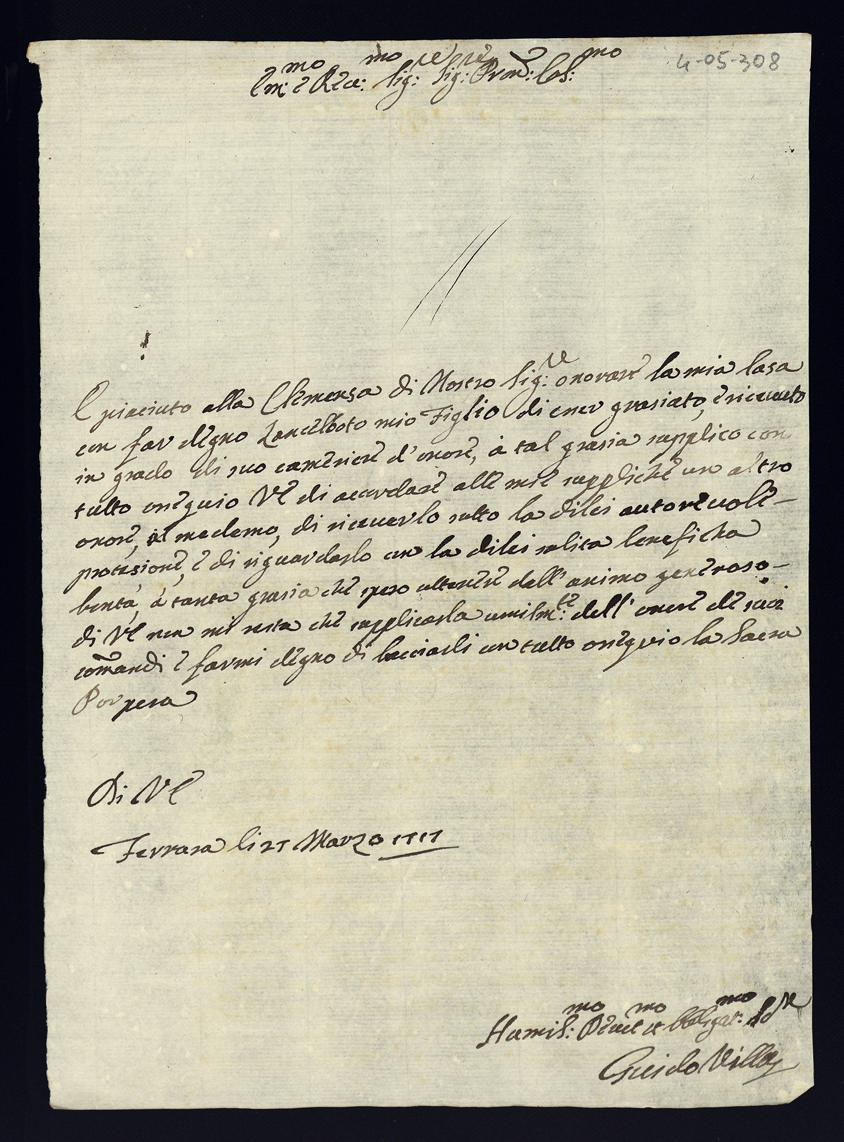 4-05-308
Em:mo e R:mo Sig:re Sig:re Pron:e Col:mo
È piaciuto alla Clemensa di Nostro Sig:re onorare la mia Casa
con far degno Lancilloto mio Figlio di esser grasiato, e riceuuto
in grado di suo cameriere d'onore, à tal grasia supplico con
tutto onequio VE di accordare alle mie suppliche un altro
onore, il medemo, di riceuerlo sotto la dilei autoreuole
protesione, e di riguardarlo con la dilei solita beneficha
bontà, à tanta grasia che spero ottenere dell'animo generoso
di VE non mi resta che supplicarla umilm:te dell'onore de suoi
comandi e farmi degno di bacciarli con tutto onequio la Sacra
Porpera
Di VE
Ferrara li 27 Marzo 1717
Humil:mo Deuot:mo et Obligat:mo Ser:re
Guido Villa